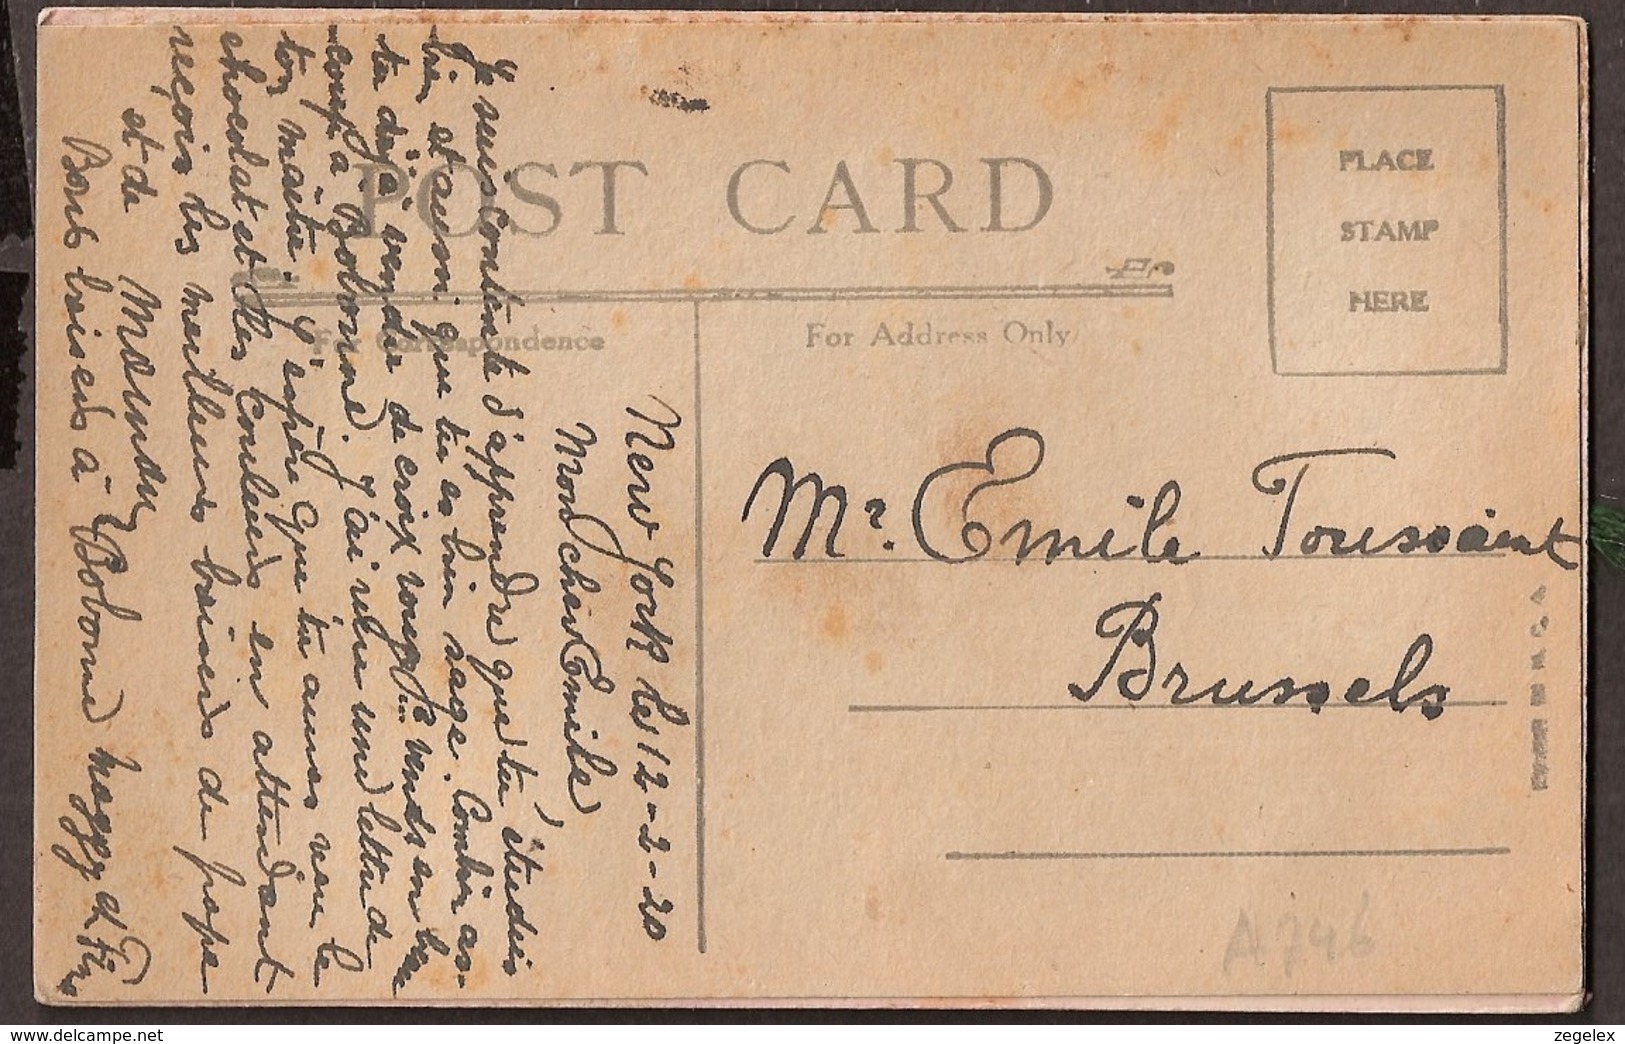 POST CARD
PLACE
STAMP
HERE
For Correspondence
For Address Only
New York les 12-2-20
Mon cher Emile,
Je suis contente d'apprendre que tu étudies
bien et aussi que tu es bien sage. Combien as-
tu déjà vendu de croix rouge... vends en
coup à Bobonne. J'ai reçu une lettre de
ton maître. J'espère que tu auras reçu le
chocolat et les couleurs en attendant
reçois les meilleurs baisers de papa
et de Maman
Bons baisers à Bobonne Maggy et
Mr. Emile Toussaint
Brussels
A746
zegelex